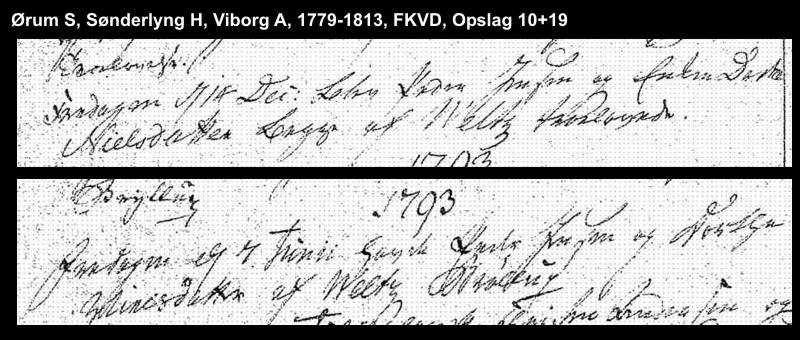 Ørum S, Sønderlyng H, Viborg A, 1779-1813, FKVD, Opslag 10+19
Trolovelse.
Fredagen d 14 Dec: blev Peder Jensen og Enken Dorthe
Nielsdatter begge af Weltz trolovede.
1793
Bryllup
1793
Fredagen d 7 Junii havde Peder Jensen og Dorthe
Nielsdatter af Weltz Bröllup
og